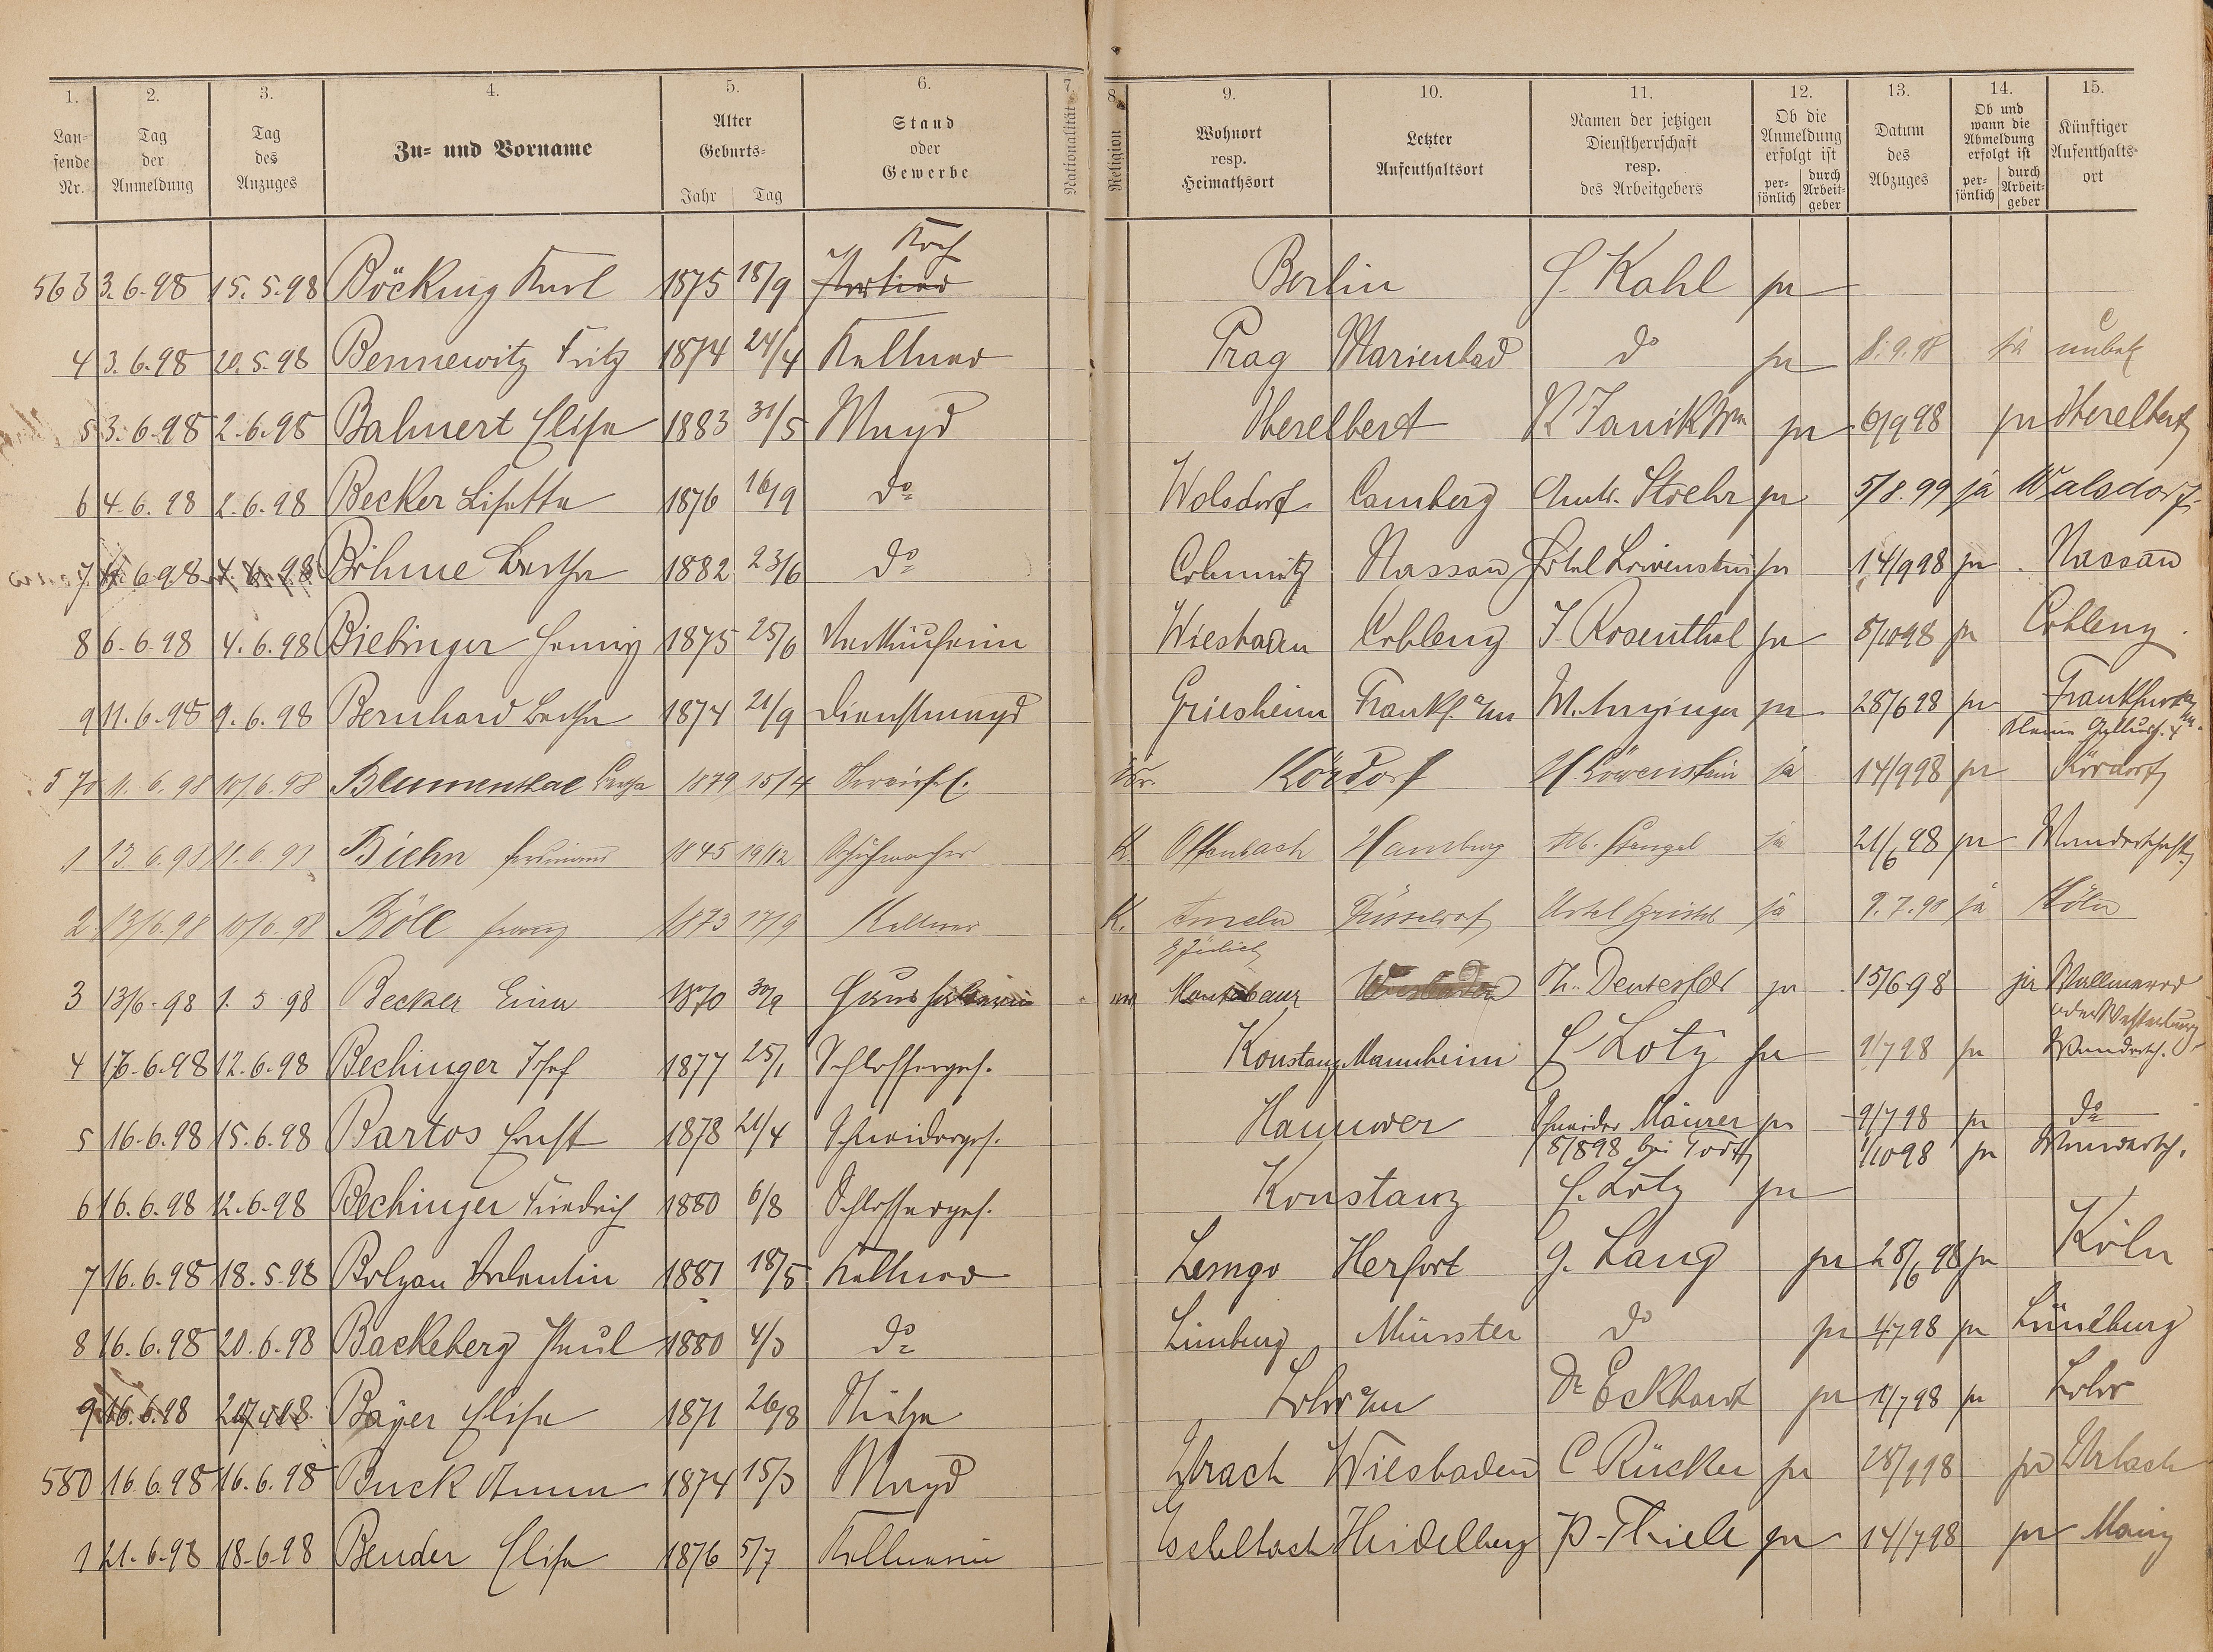 1. 2. 3. 4. 5. 6. 7. 8. 9. 10. 11. 12. 13. 14. 15.
Laufende Nr. | Tag der Anmeldung | Tag des Anzuges | Zu- und Vorname | Alter Geburts- Jahr Tag | Stand oder Gewerbe | Nationalität | Religion | Wohnort resp. Heimathsort | Letzter Aufenthaltsort | Namen der jetzigen Dienstherrschaft resp. des Arbeitgebers | Ob die Anmeldung erfolgt ist persönlich durch Arbeitgeber | Datum des Abzuges | Ob und wann die Abmeldung erfolgt ist persönlich durch Arbeitgeber | Künftiger Aufenthaltsort
Koch
563 3.6.98 15.5.98 Böcking Karl 1875 18/9 Berlin Kahl ja
4 3.6.98 20.5.98 Bennewitz Fritz 1874 24/4 Kellner Prag Marienbad do ja 8.9.98 ja unbek
5 3.6.98 2.6.98 Bahnert Elise 1883 31/5 Magd Oberelbert ja 6/9 98 ja Oberelbert
6 4.6.98 2.6.98 Becker Lisette 1876 16/9 do Walsdorf Camberg Stoehr ja 5/8.99 ja Walsdorf
7 6.98 Böhme Bertha 1882 23/6 do Nassau Hotel Löwenstein ja 14/9 98 ja Nassau
8 6.6.98 4.6.98 Biebinger Henny 1875 25/6 Verkäuferin Wiesbaden Coblenz J. Rosenthal ja 5/10 98 ja Coblenz.
9 11.6.98 9.6.98 Bernhard Bertha 1874 21/9 Dienstmagd Griesheim Frankf. a/m ja 28/6 98 ja Frankfurt
570 11.6.98 10/6.98 Blumenthal Bertha 1879 15/4 Isr. Kördorf H. Löwenstein ja 14/9 98 ja Kördorf
1 13.6.98 11.6.98 Biehn Ferdinand 1845 19/12 Schuhmacher K. Offenbach Hamburg Stengel ja 21/6 98 ja Wanderschaft
2 13/6.98 10/6.98 Böll Franz 1873 17/9 Kellner K. Düsseldorf Hotel ja 9.7.98 ja Köln
3 13/6.98 1.5 98 Becker Lina 1870 30/9 Haushälterin Wiesbaden ja 15/6 98 ja Wallmerod
oder Westerburg
4 16.6.98 12.6.98 Bechinger Josef 1877 25/1 Schlosserges. Konstanz Mannheim Lotz ja 9/7 98 ja Wandersch.
5 16.6.98 15.6.98 Bartos Ernst 1878 21/4 Schneiderges. Hannover Schneider Mäurer ja 9/7 98 ja do
8/8 98 bei 1/10 98 ja Wandersch.
6 16.6.98 12.6.98 Bechinger Friedrich 1880 6/8 Schlosserges. Konstanz Lotz ja
7 16.6.98 18.5.98 Bolzau Valentin 1881 18/5 Kellner Lemgo Herfort G. Lang ja 28/6 98 ja Köln
8 16.6.98 20.6.98 Backeberg Paul 1880 4/3 do Limburg Münster do ja 4/7 98 ja Lüneburg
9 16.6.98 Bayer Elise 1871 26/8 Lohr a/m Dr Eckhardt ja 11/7 98 ja Lohr
580 16.6.98 16.6.98 Buck Anna 1874 15/3 Magd Urbach Wiesbaden C Rücker ja ja Urbach
1 21.6.98 18.6.98 Bender Elise 1876 5/7 Kellnerin Eschelbach Heidelberg P. Thiele ja 14/7 98 ja Mainz